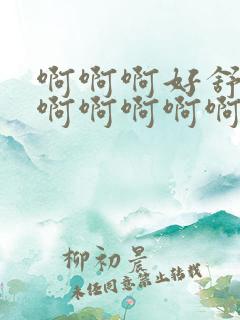 啊啊啊好舒
啊啊啊啊啊
柳初晨
未经同意禁止转载